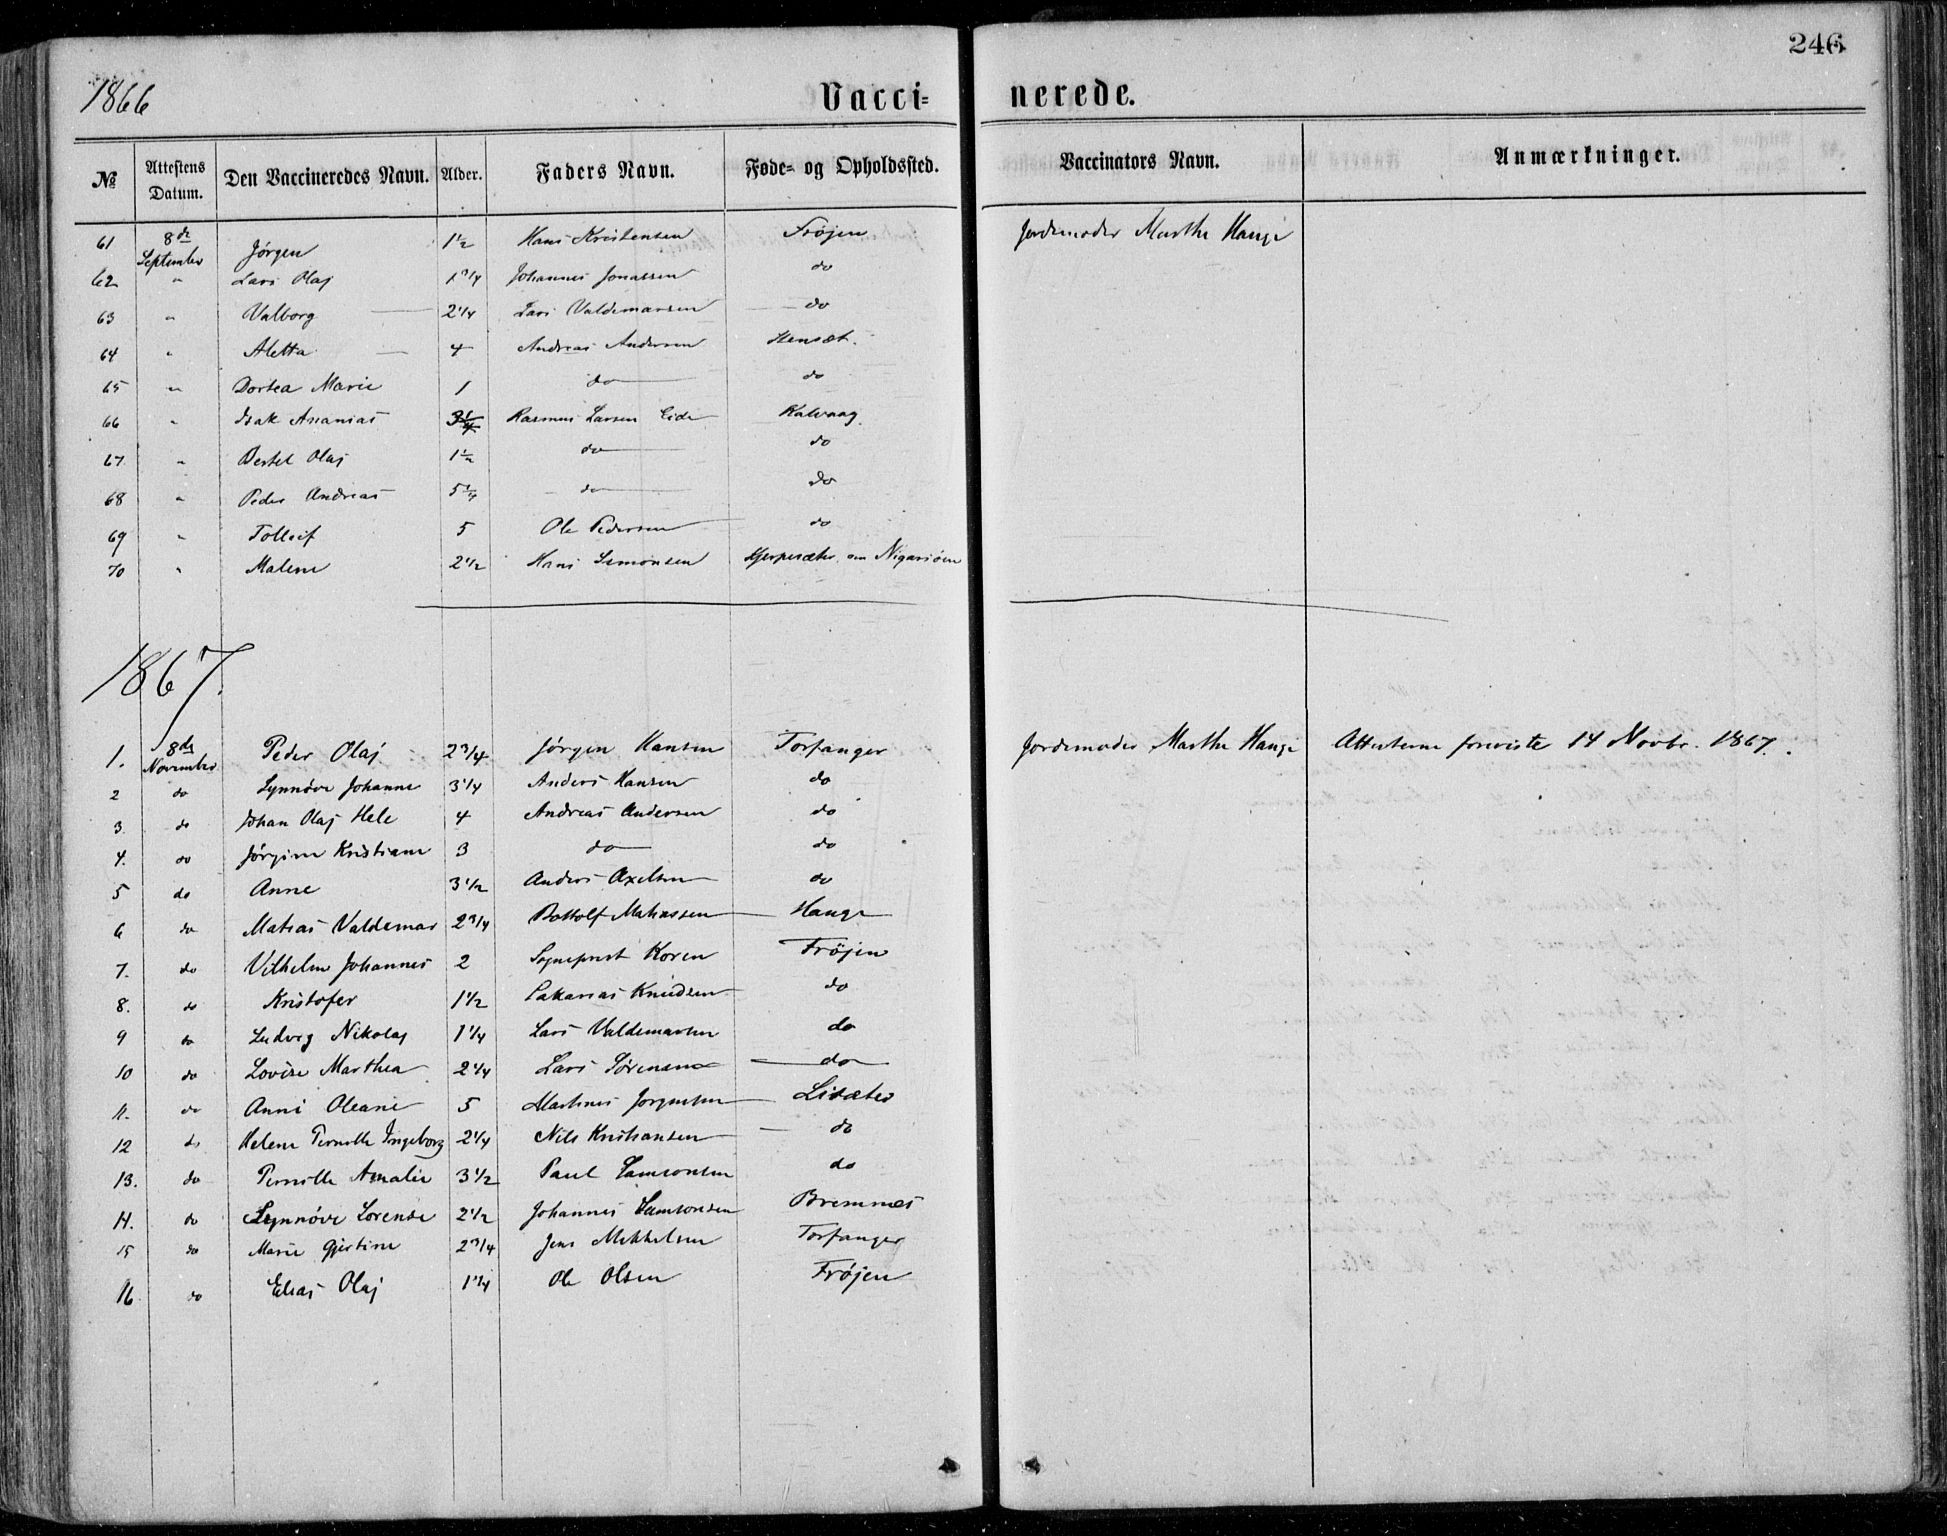 246
1866 Vacci= nerede.
№ Attestens Datum. Den Vaccineredes Navn. Alder. Faders Navn. Føde- og Opholdssted. Vaccinators Navn. Anmærkninger.
61 8de September Jørgen 1½ Hans Kristensen Frøjen Jordemoder Marthe Hauge
62 " Lars Olaj 1¾ Johannes Jonassen do
63 " Valborg 2¼ Lars Valdemarsen do
64 " Aletta 4 Andreas Andersen Stensæt.
65 " Dortea Marie 1 do do
66 " Isak Ananias Rasmus Larsen Eide Kalvaag
67 " Bertel Olaj 1½ do do
68 " Peder Andreas do do
69 " Tolleif 5 Ole Pedersen do
70 " Malene 2½ Hans Simonsen
1867.
1. 8de November Peder Olaj 2¾ Jørgen Hansen Torfanger Jordemoder Marthe Hauge Attesterne foreviste 14 Novbr. 1867.
2 do Synnøve Johanne 3¼ Anders Hansen do
3. do Johan Olaj Hele 4 Andreas Andersen do
4. do Jørgine Kristiane 3 do do
5 do Anne 3½ Anders Axelsen do
6 do Matias Valdemar 2¾ Bottolf Matiassen Hauge
7. do Vilhelm Johannes 2 Sognepræst Koren Frøjen
8. do Kristofer 1½ Sakarias Knudsen do
9 do Ludvig Nikolaj 1¼ Lars Valdemarsen do
10 do Lovise Marthea 2¼ Lars Sørensen do
11. do Anne Oleane 5 Martinus Jørgensen Lisæter
12 do Helene Pernille Ingeborg 2¼ Nils Kristiansen do
13. do Pernille Amalie 3½ Paul Samsonsen do
14. do Synnøve Lorense 2½ Johannes Samsonsen Bremnes
15 do Marie Gjertine 2¾ Jens Mikkelsen Torfanger
16 do Elias Olaj 1¾ Ole Olsen Frøjen